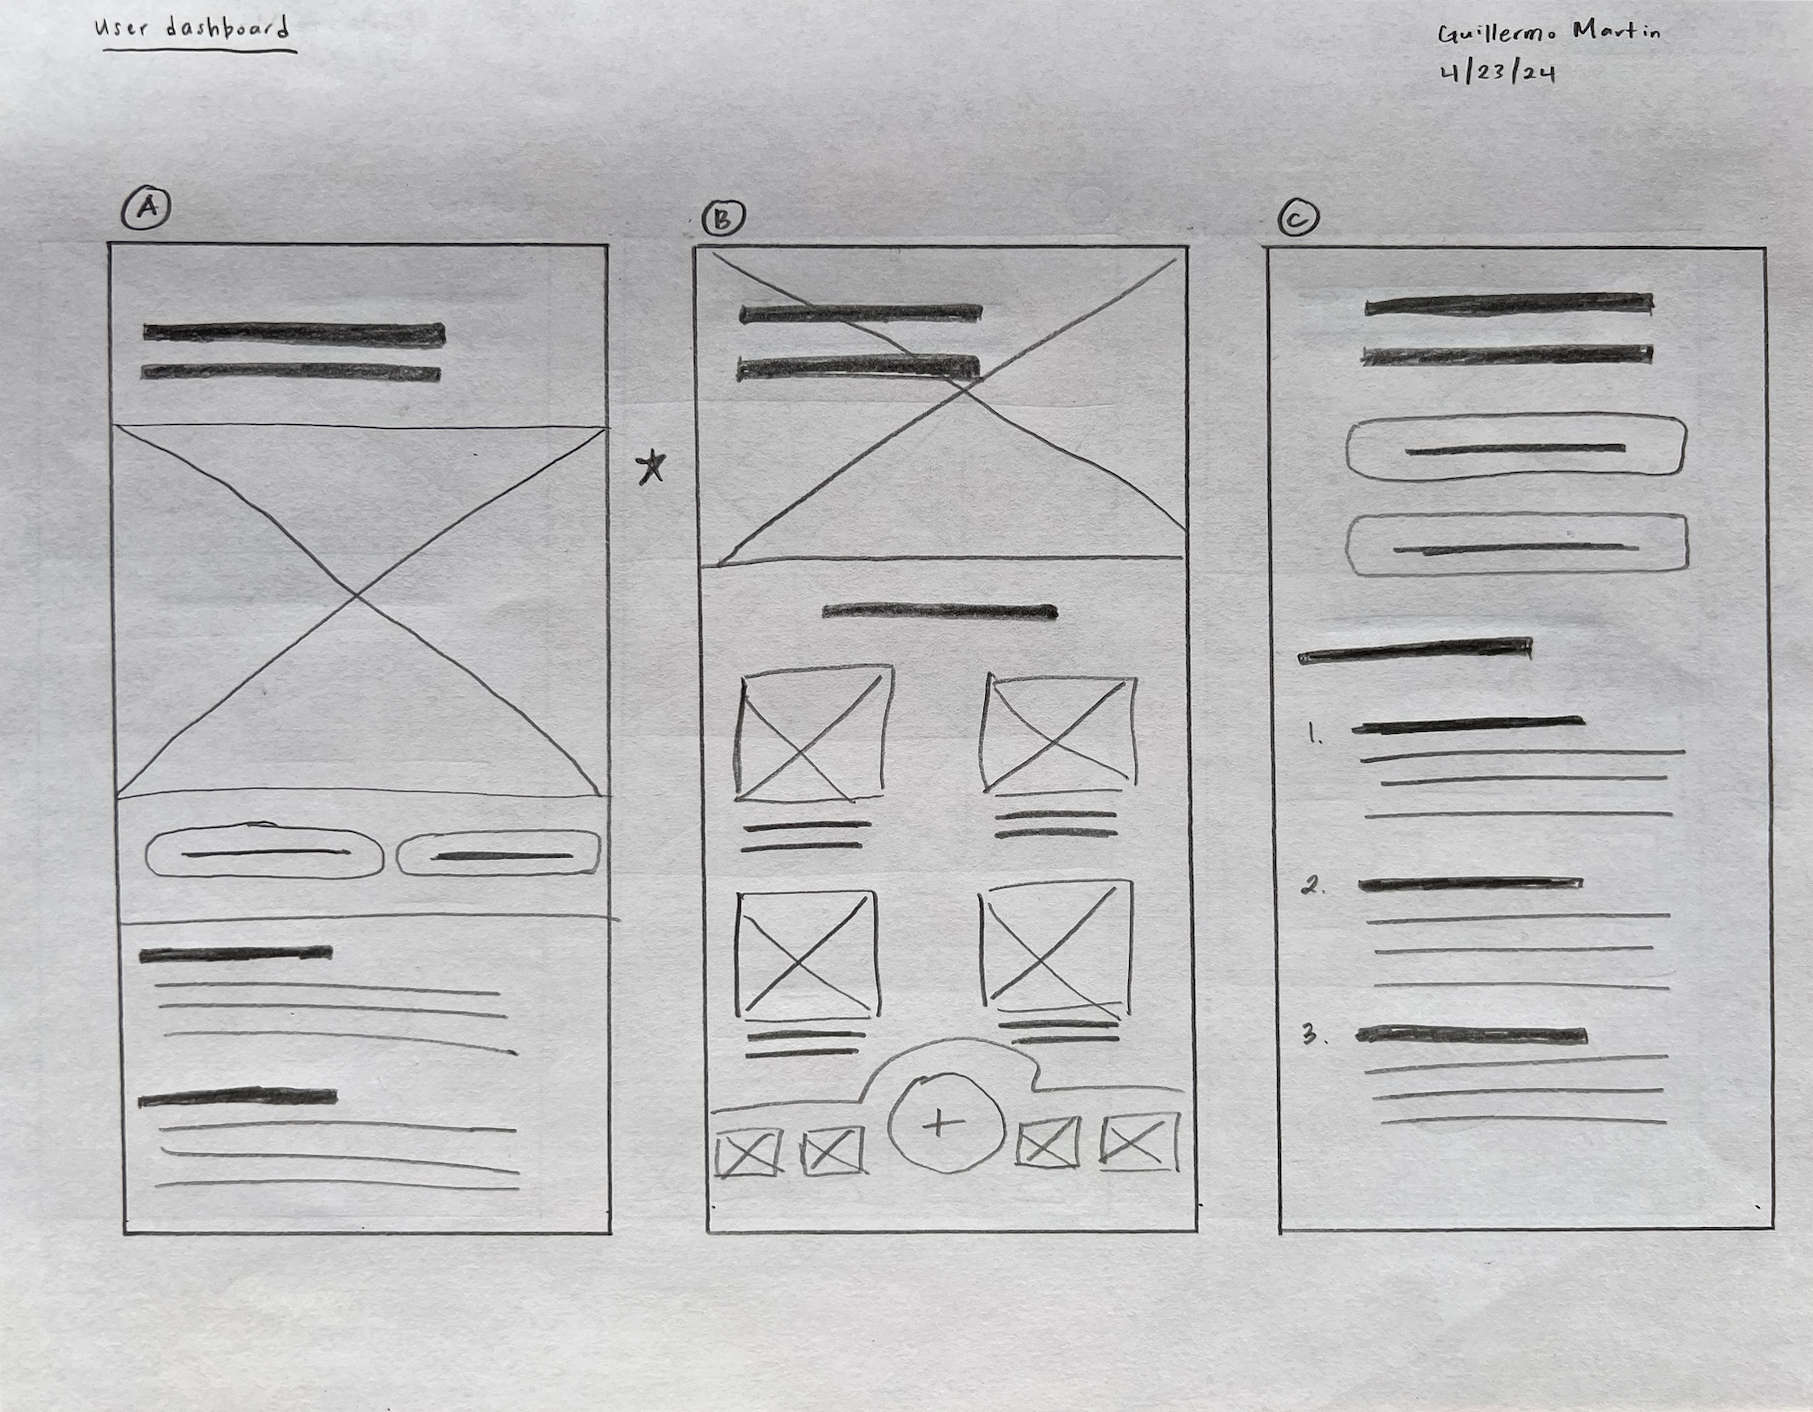 User dashboard
Guillermo Martin
4/23/24
A
B
C
1.
2.
3.
+